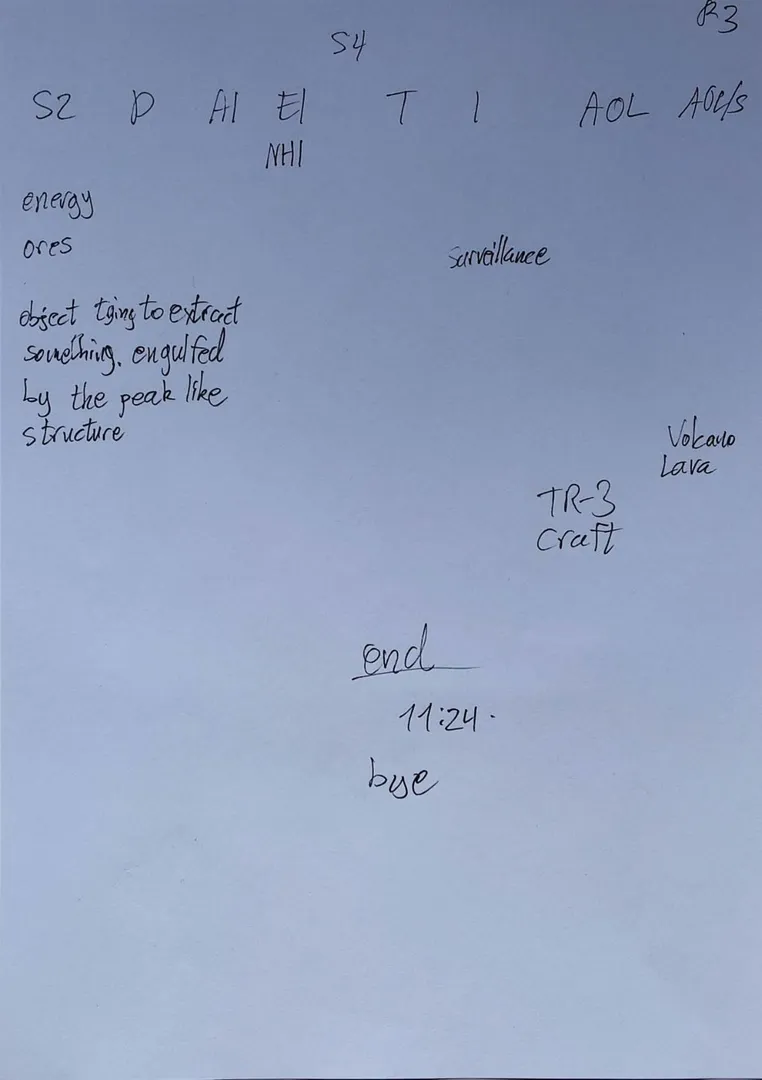 R3
S4
S2 D AI EI T I AOL AOL/S
NHI
energy
ores
surveillance
object tying to extract
something. engulfed
by the peak like
structure
Volcano
Lava
TR-3
Craft
end
11:24.
bye